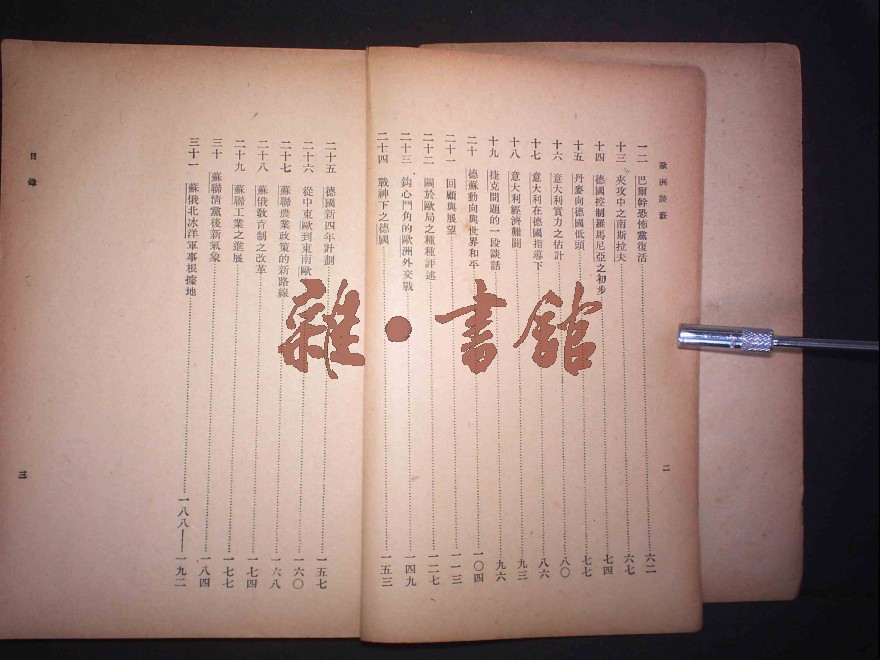 歐洲談薮
一二 巴爾幹恐怖黨復活 六二
十三 夾攻中之南斯拉夫 六七
十四 德國控制羅馬尼亞之初步 七四
十五 丹麥向德國低頭 七七
十六 意大利實力之估計 八〇
十七 意大利在德國指導下 八六
十八 意大利經濟難關 九三
十九 捷克問題的一段談話 九六
二十 德蘇動向與世界和平 一〇四
二十一 回顧與展望 一一三
二十二 關於歐局之種種評述 一二七
二十三 鈎心鬥角的歐洲外交戰 一四九
二十四 戰神下之德國 一五三
二
二十五 德國新四年計劃 一五七
二十六 從中東歐到東南歐 一六〇
二十七 蘇聯農業政策的新路線 一六八
二十八 蘇俄敎育制之改革 一七四
二十九 蘇聯工業之進展 一七七
三十 蘇聯清黨後新氣象 一八四
三十一 蘇俄北冰洋軍事根據地 一八八——一九二
目錄
三
雜•書館